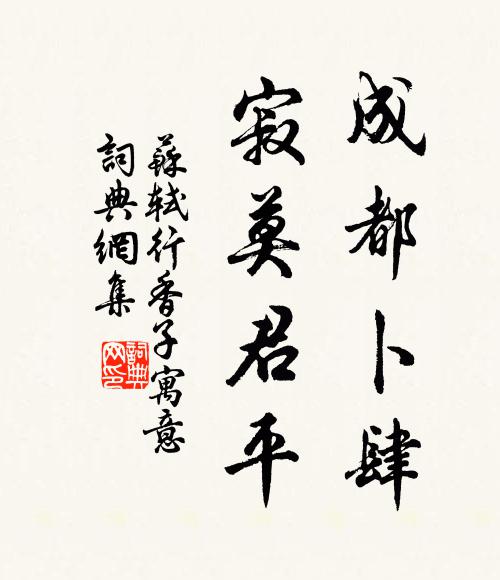 成都卜肆
寂莫君平
蘇軾行香子寓意
詞典網集
詞典網印